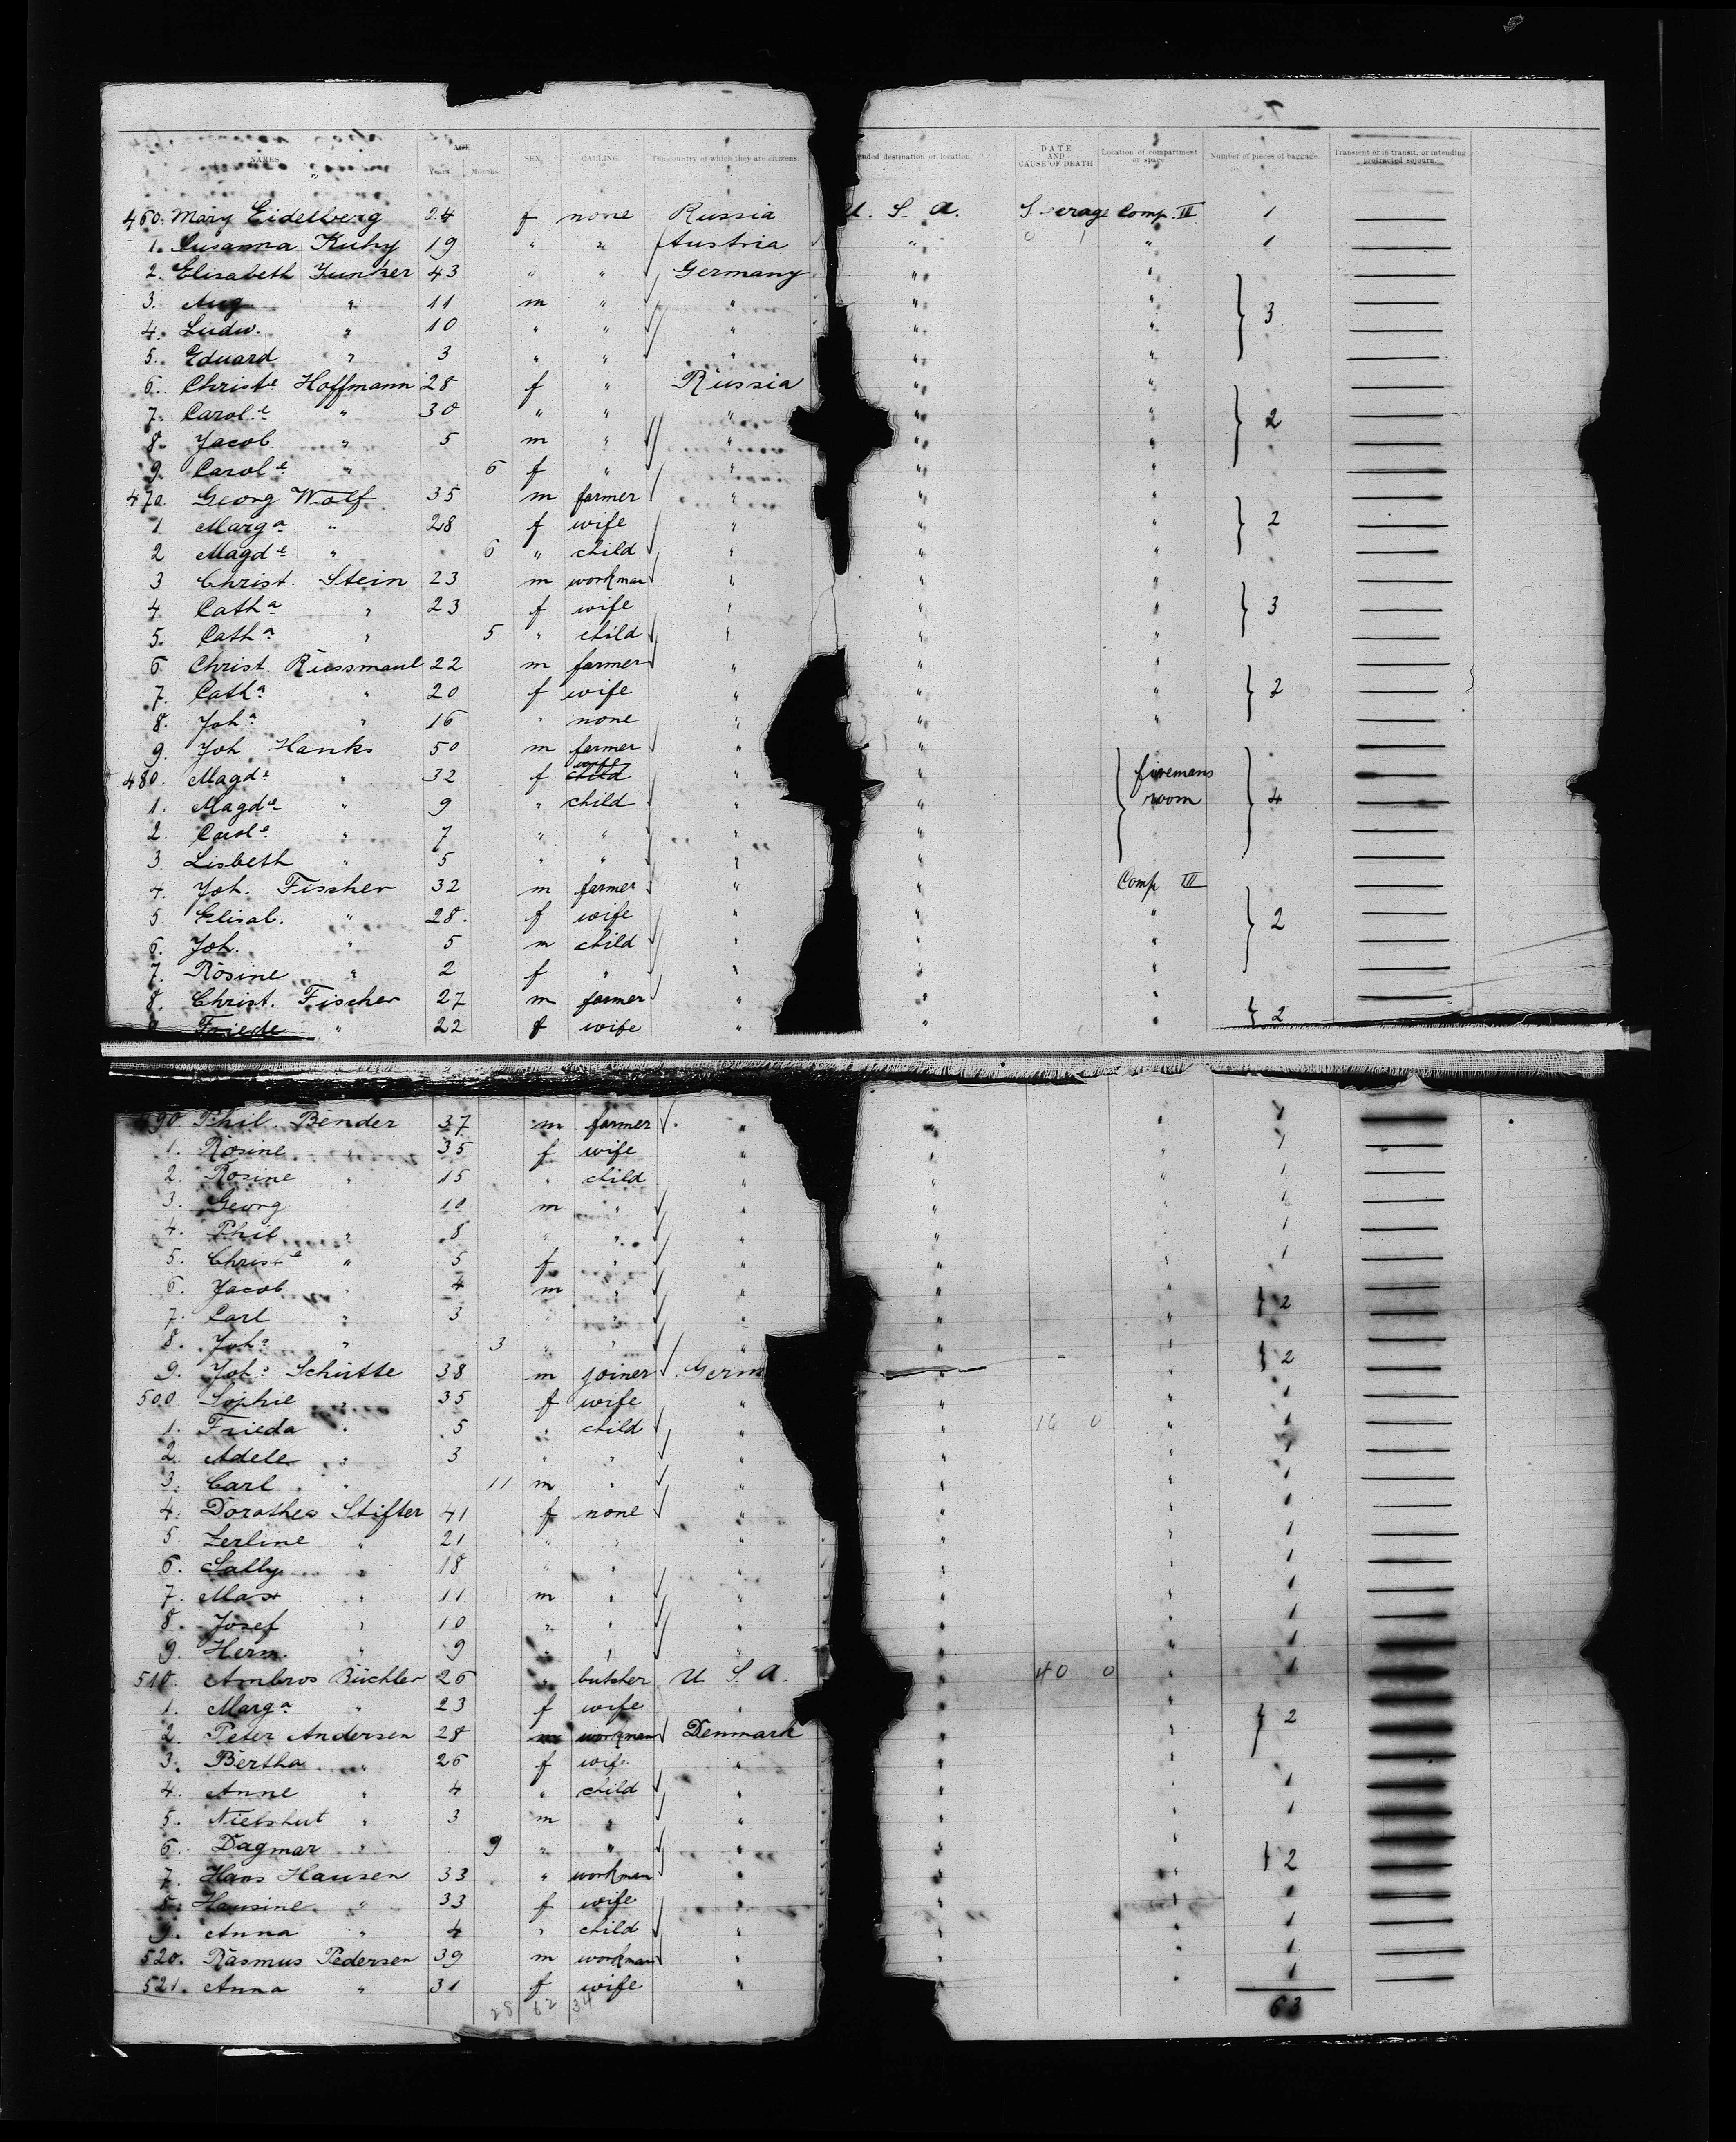 NAMES AGE Years. Months. SEX. CALLING. The country of which they are citizens. ended destination or location. DATE AND CAUSE OF DEATH Location of compartment or space. Number of pieces of baggage. Transient or in transit, or intending protracted sojourn.
460. Mary Eidelberg 24 f none Russia U. S. A. Comp. III 1 —
1. Susanna Kuhy 19 " " Austria " " 1 —
2. Elisabeth Junker 43 " " Germany " " —
3. Aug " 11 m " " " " } 3 —
4. Ludw. " 10 " " " " " —
5. Eduard " 3 " " " " " —
6. Christe Hoffmann 28 f " Russia " " —
7. Carole " 30 " " " " " } 2 —
8. Jacob " 5 m " " " " —
9. Carole " 6 f " " " " —
470. Georg Wolf 35 m farmer " " " —
1. Marga " 28 f wife " " " } 2 —
2 Magde " 6 " child " " " —
3 Christ. Stein 23 m workman " " " —
4. Catha " 23 f wife " " " } 3 —
5. Catha " 5 " child " " " —
6. Christ. Riussmaul 22 m farmer " " " —
7. Catha " 20 f wife " " " } 2 —
8. Joha " 16 " none " " " —
9. Joh Hanks 50 m farmer " " —
480. Magde " 32 f child wife " " firemens —
1. Magde " 9 " child " " room } 4 —
2. Carole " 7 " " " " —
3. Lisbeth " 5 " " " " —
4. Joh. Fischer 32 m farmer " " Comp III —
5. Elisab. " 28. f wife " " " } 2 —
6. Joh. " 5 m child " " " —
7. Rosine " 2 f " " " " —
8. Christ. Fischer 27 m farmer " " " —
Friede " 22 f wife " " " } 2
490 Phil. Bender 37 m farmer " " " 1 —
1. Rosine " 35 f wife " " " 1 —
2. Rosine " 15 " child " " " 1 —
3. Georg 10 m " " " " 1 —
4. Phil " 8 " " " " " 1 —
5. Christe " 5 f " " " " 1 —
6. Jacob " 4 m " " " " —
7. Carl " 3 " " " " " } 2 —
8. Joha " 3 " " " " " —
9. Joh. Schütte 38 m joiner Germ " } 2 —
500. Sophie " 35 f wife " " " 1 —
1. Frieda " 5 " child " " 16 0 " 1 —
2. Adele " 3 " " " " " 1 —
3. Carl " 11 m " " " " 1 —
4. Dorothea Stifter 41 f none " " " 1 —
5. Zerline " 21 " " " " " 1 —
6. Sally " 18 " " " " " 1 —
7. Max " 11 m " " " " 1 —
8. Josef " 10 " " " " " 1 —
9. Herm. " 9 " " " " " 1 —
510. Ambros Büchler 26 " butcher U. S. A. " 40 0 " 1 —
1. Marga " 23 f wife " " " —
2. Peter Andersen 28 m workman Denmark " " } 2 —
3. Bertha " 26 f wife " " " —
4. Anne " 4 " child " " " 1 —
5. " 3 m " " " " 1 —
6. Dagmar " 9 " " " " " —
7. Hans Hansen 33 " workman " " " } 2 —
8. Hansine " 33 f wife " " " 1 —
9. Anna " 4 " child " " " 1 —
520. Rasmus Pedersen 39 m workman " " " 1 —
521. Anna " 31 f wife " " " 1 —
28 62 34 63